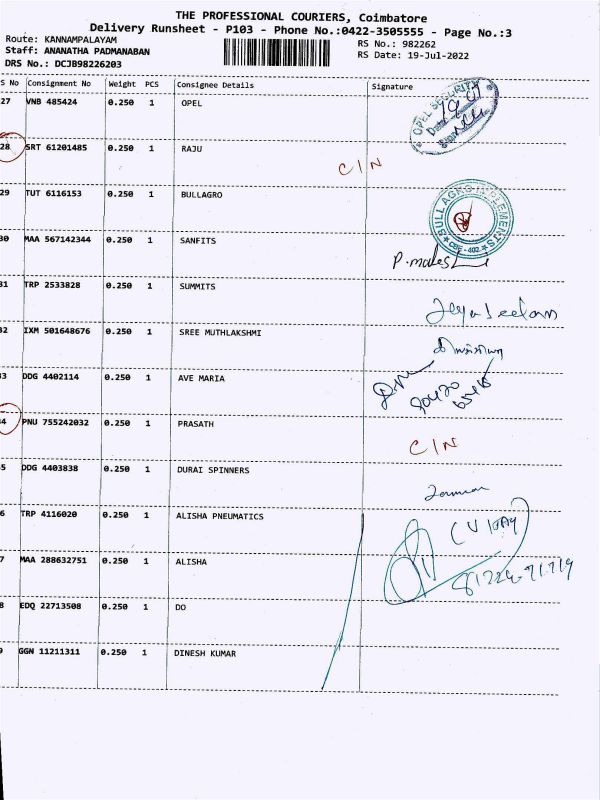 THE PROFESSIONAL COURIERS, Coimbatore
Delivery Runsheet - P103 - Phone No.:0422-3505555 - Page No.:3
Route: KANNAMPALAYAM
RS No.: 982262
Staff: ANANATHA PADMANABAN
RS Date: 19-Jul-2022
DRS No.: DCJB98226203
S No Consignment No Weight PCS Consignee Details Signature
27 VNB 485424 0.250 1 OPEL
OPEL SECURITY
28 SRT 61201485 0.250 1 RAJU C/N
29 TUT 6116153 0.250 1 BULLAGRO
BULL AGRO IMPLEMENTS
CBE - 402
30 MAA 567142344 0.250 1 SANFITS
31 TRP 2533828 0.250 1 SUMMITS
32 IXM 501648676 0.250 1 SREE MUTHLAKSHMI
33 DDG 4402114 0.250 1 AVE MARIA
34 PNU 755242032 0.250 1 PRASATH C/N
5 DDG 4403838 0.250 1 DURAI SPINNERS
6 TRP 4116020 0.250 1 ALISHA PNEUMATICS
7 MAA 288632751 0.250 1 ALISHA
8 EDQ 22713508 0.250 1 DO
9 GGN 11211311 0.250 1 DINESH KUMAR